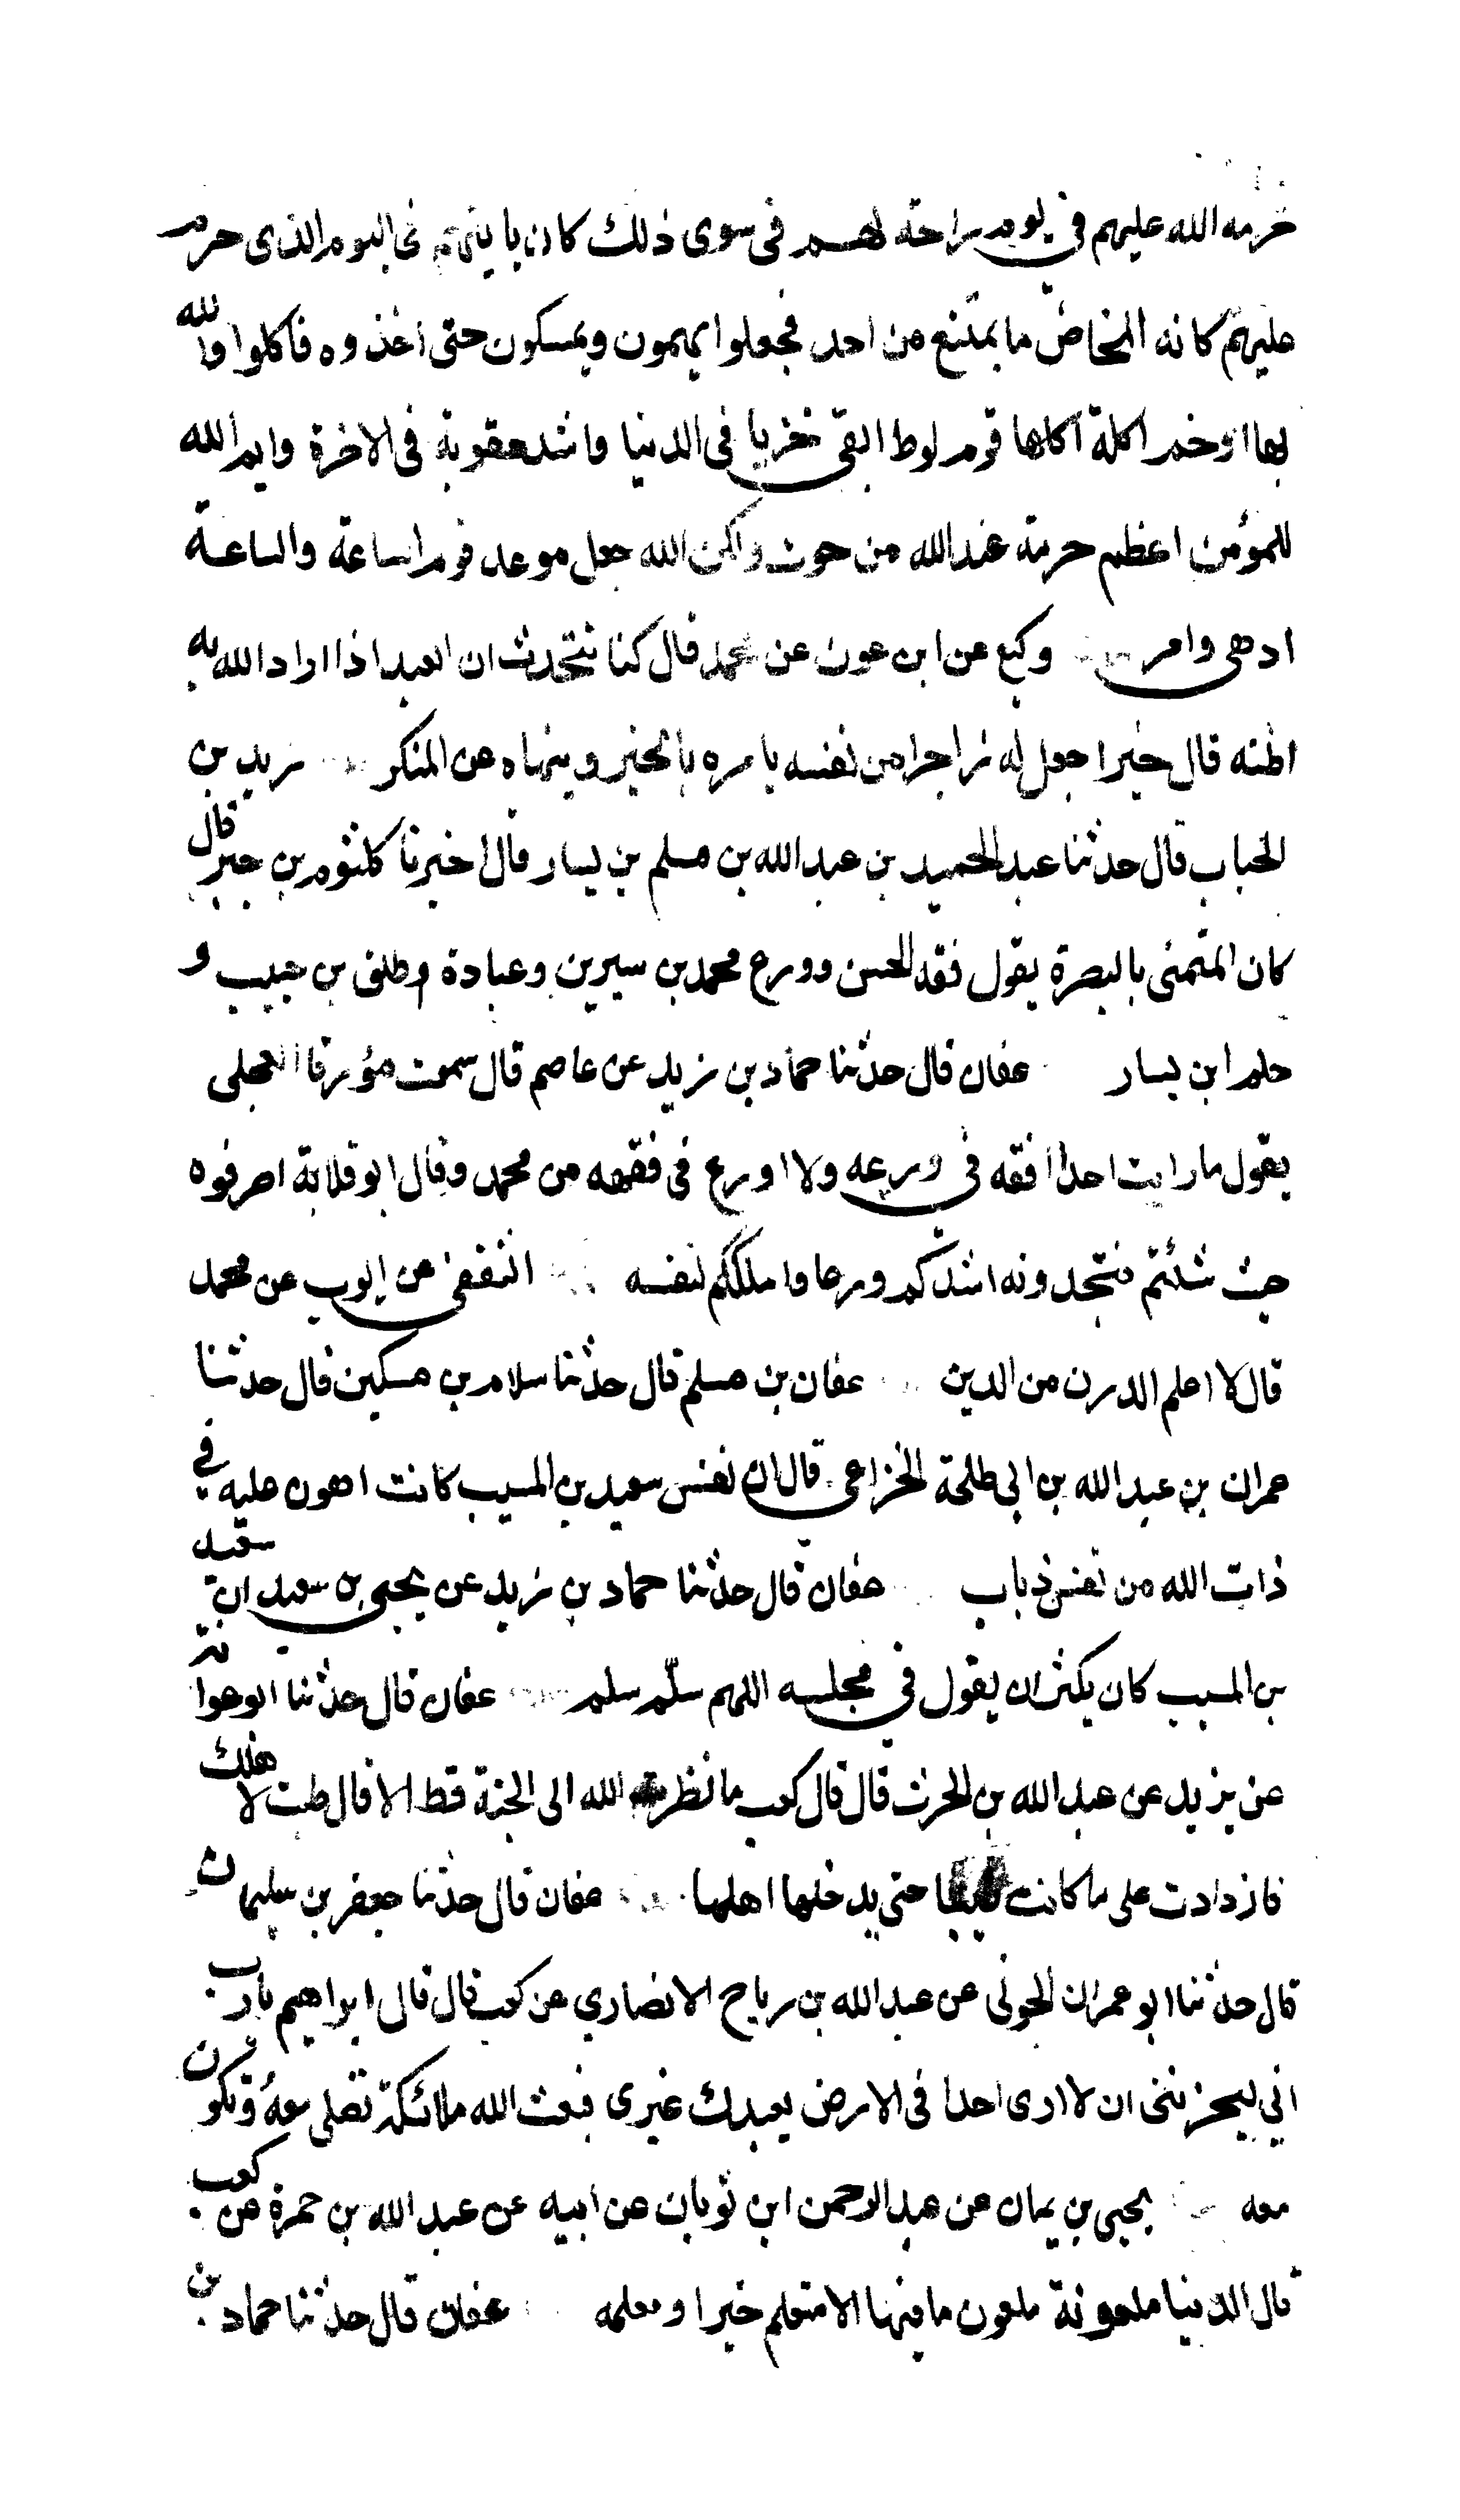 حرمه الله عليهم في يوم راحة لهم في سوى ذلك كان ياتيهم في اليوم الذى حرم
عليهم كانه المخاض ما يمتنع من احد فجعلوا يهمون ويمسكون حتى اخذوه فاكلوا والله
بها اوخم اكلة اكلها قوم لوط ابقى خزيا في الدنيا واشد عقوبة في الاخرة وايم الله
للمؤمن اعظم حرمة عند الله من حوت ولكن الله جعل موعد قوم الساعة والساعة
ادهى وامر وكيع عن ابن عون عن محمد قال كنا نتحدث ان العبد اذا اراد الله به
اظنه قال خيرا جعل له زاجرا من نفسه يامره بالخير وينهاه عن المنكر زيد بن
الحباب قال حدثنا عبد الحميد بن عبد الله بن مسلم بن يسار قال اخبرنا كلثوم بن جبر قال
كان المتمنى بالبصرة يقول فقه الحسن وورع محمد بن سيرين وعبادة وطلق بن حبيب و
حلم ابن يسار عفان قال حدثنا حماد بن زيد عن عاصم قال سمعت مؤرقا العجلى
يقول ما رايت احدا افقه في ورعه ولا اورع في فقهه من محمد وقال ابو قلابة اصرفوه
حيث شئتم فتجدونه اشدكم ورعا واملككم لنفسه الثقفى عن ايوب عن محمد
قال لا اعلم الدرن من الدين عفان بن مسلم قال حدثنا سلام بن مسكين قال حدثنا
عمران بن عبد الله بن ابى طلحة الخزاعى قال ان نفس سعيد بن المسيب كانت اهون عليه في
ذات الله من نفس ذباب عفان قال حدثنا حماد بن زيد عن يحيى بن سعيد ان سعيد
بن المسيب كان يكثر ان يقول في مجلسه اللهم سلّم سلم عفان قال حدثنا ابو عوانة
عن يزيد عن عبد الله بن الحرث قال قال كعب ما نظر الله الى الجنة قط الا قال طبت لاهلك
فازدادت على ما كانت طيبا حتى يدخلها اهلها عفان قال حدثنا جعفر بن سليمان
قال حدثنا ابو عمران الجونى عن عبد الله بن رباح الانصاري عن كعب قال قال ابراهيم يا رب
اني ليحزننى ان لا ارى احدا في الارض يعبدك غيرى فبعث الله ملائكة تصلى معه وتكون
معه يحيى بن يمان عن عبد الرحمن ابن ثوبان عن ابيه عن عبد الله بن حمزة عن كعب
قال الدنيا ملعونة ملعون ما فيها الا متعلم خيرا ومعلمه عفان قال حدثنا حماد بن